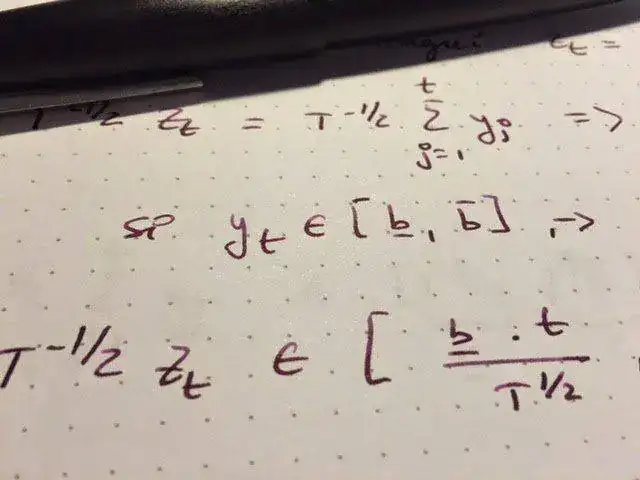 T^{-1/2} Z_t = T^{-1/2} \sum_{j=1}^{t} y_j =>
si y_t ∈ [b̲, b̄], ->
T^{-1/2} Z_t ∈ [ \frac{b̲ . t}{T^{1/2}}